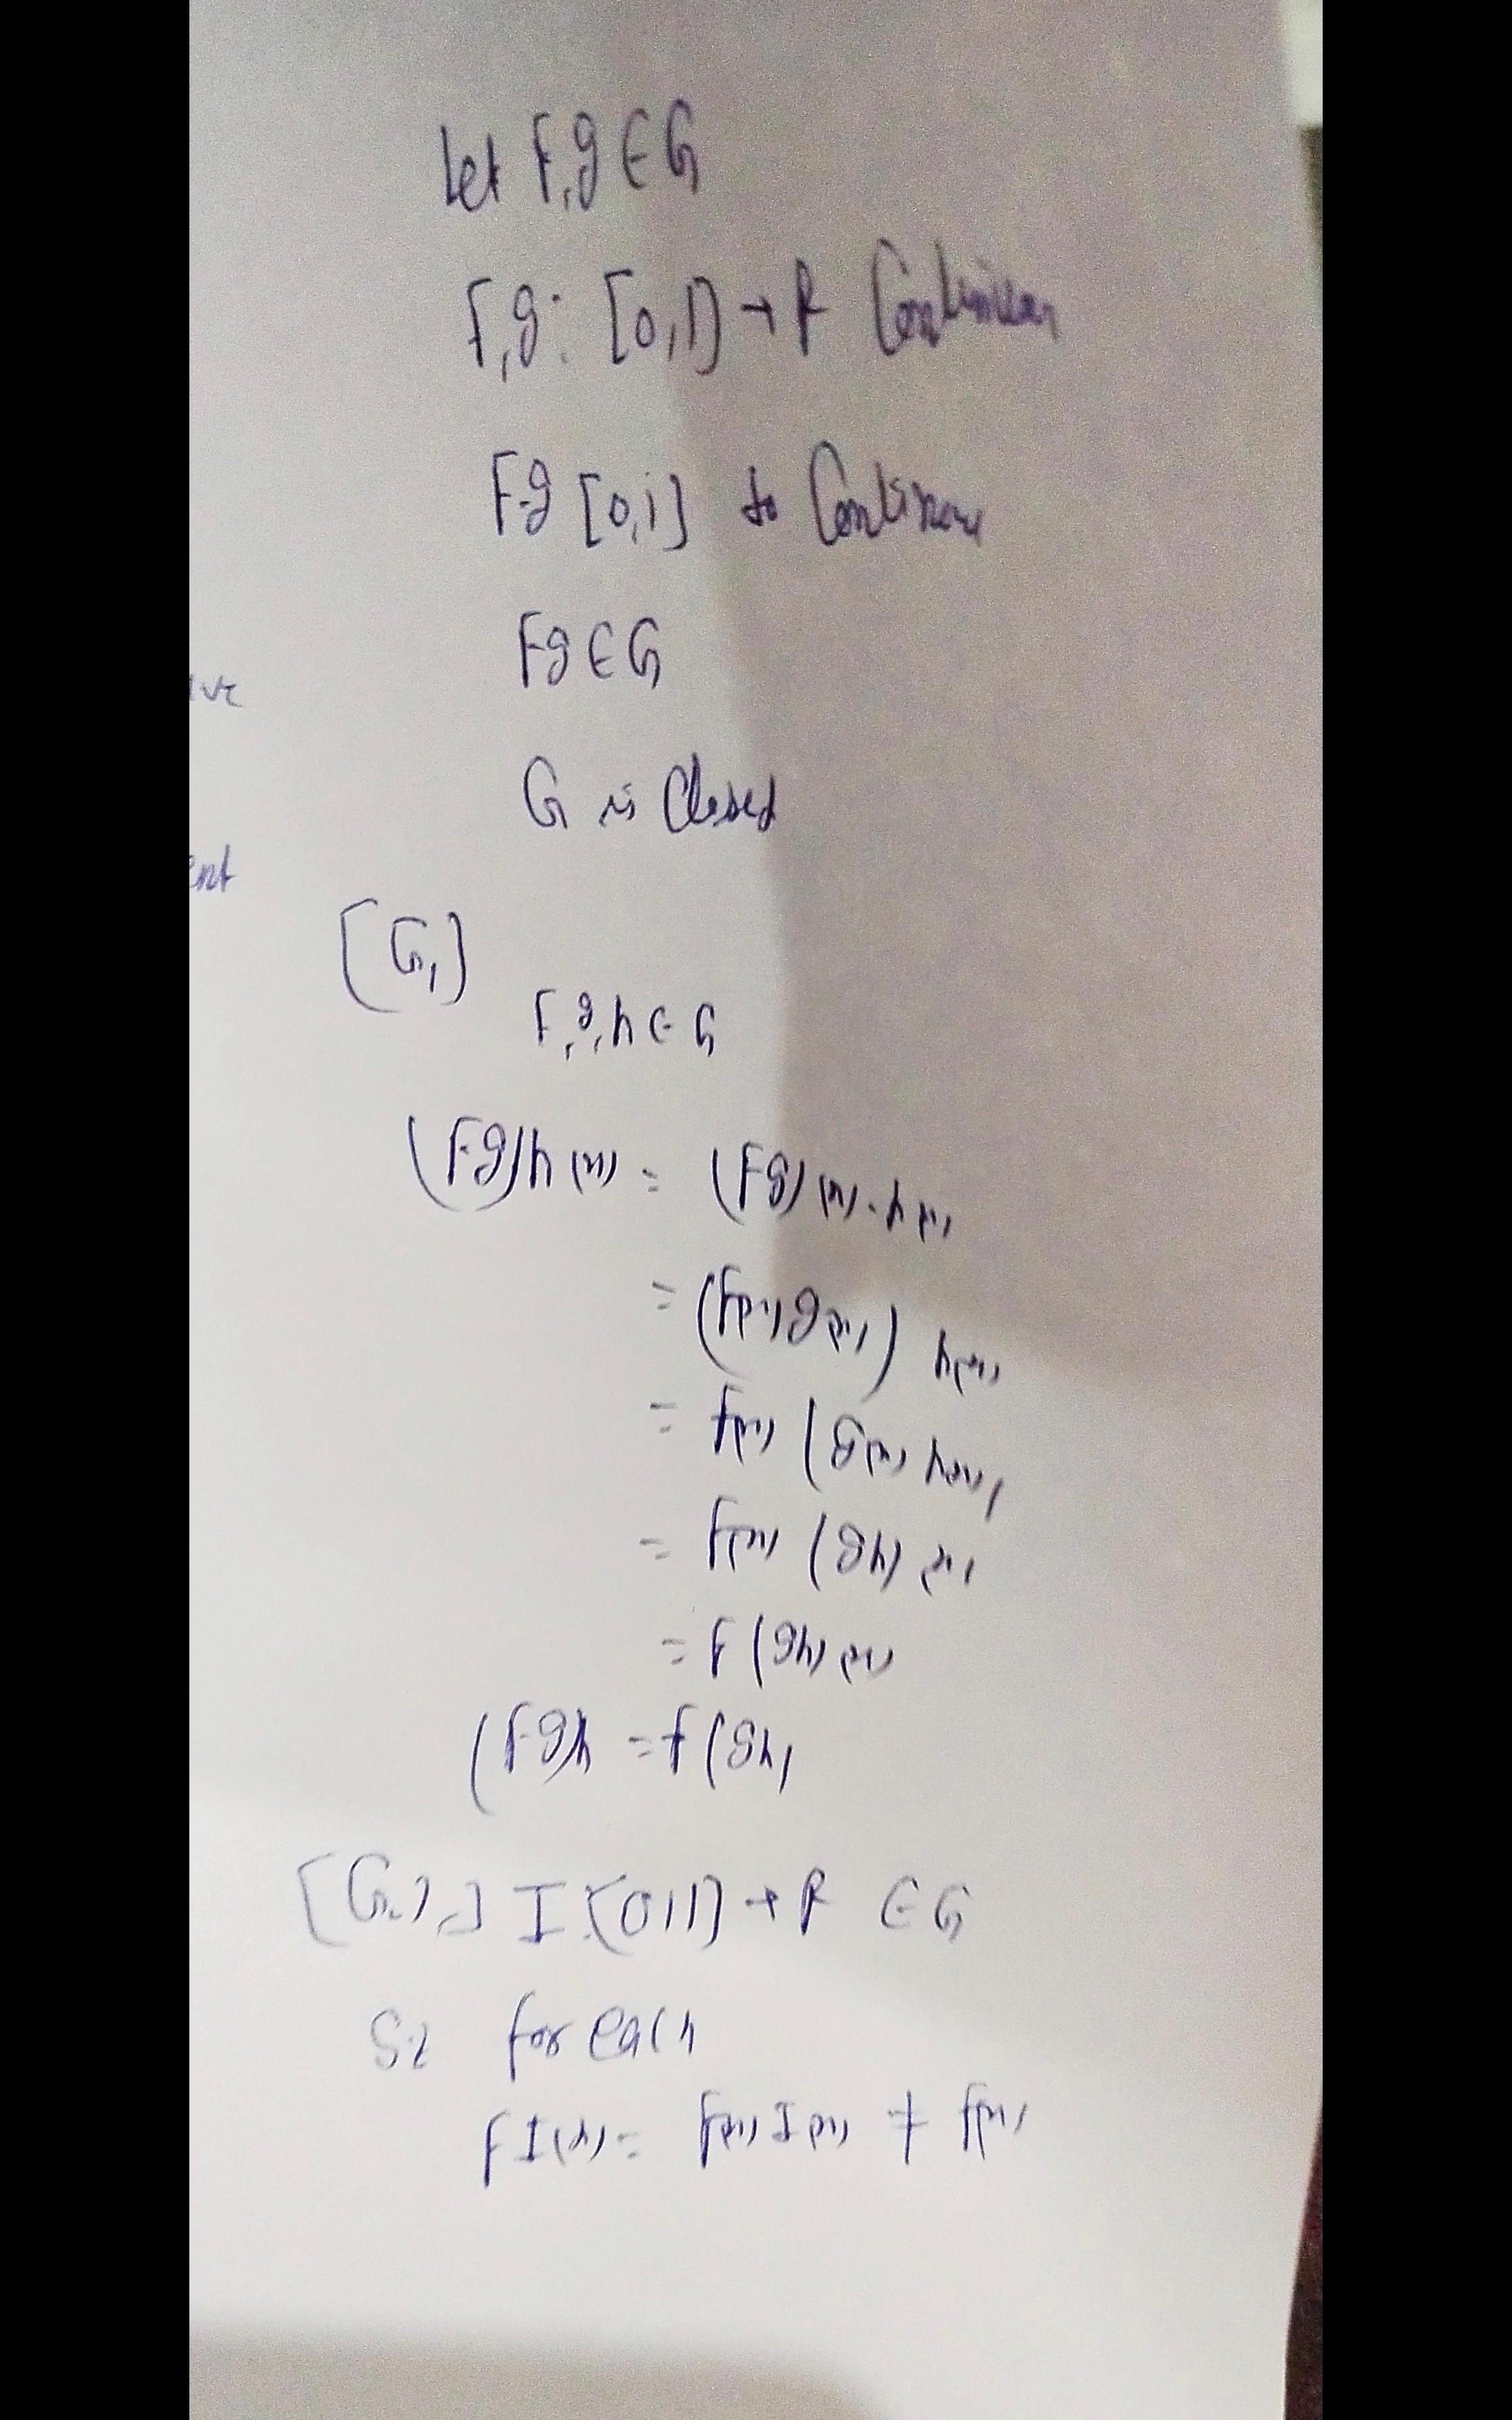 Let F,g ∈ G
F,g: [0,1] → R Continuous
F.g [0,1] to Continuous
Fg ∈ G
ve
G is Closed
ent
[G1]
F,g,h ∈ G
(F.g)h(x) = (Fg)(x).h(x)
= (F(x)g(x)) h(x)
= f(x) (g(x) h(x))
= f(x) (gh)(x)
= f(gh)(x)
(F.g)h = f(gh)
[G2] I:[0,1] → R ∈ G
for each
fI(x) = f(x) I(x) ≠ f(x)